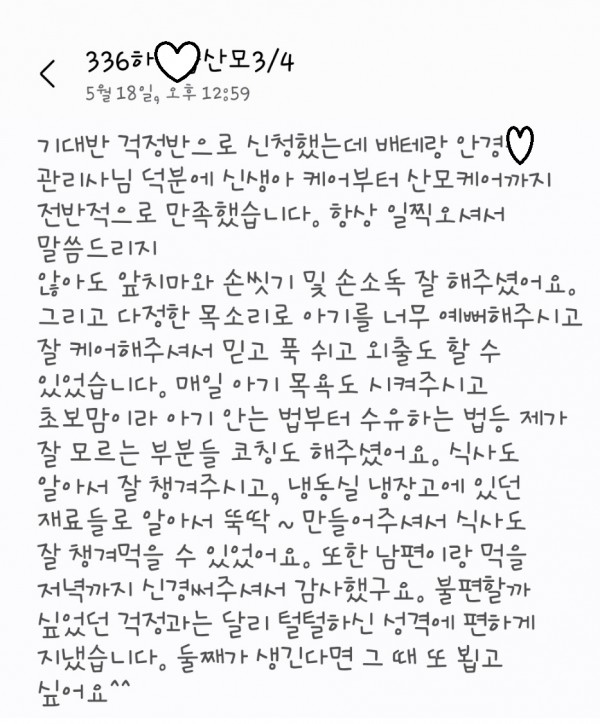 336하 산모3/4
5월 18일, 오후 12:59
기대반 걱정반으로 신청했는데 배테랑 안경
관리사님 덕분에 신생아 케어부터 산모케어까지
전반적으로 만족했습니다. 항상 일찍오셔서
말씀드리지
않아도 앞치마와 손씻기 및 손소독 잘 해주셨어요.
그리고 다정한 목소리로 아기를 너무 예뻐해주시고
잘 케어해주셔서 믿고 푹 쉬고 외출도 할 수
있었습니다. 매일 아기 목욕도 시켜주시고
초보맘이라 아기 안는 법부터 수유하는 법등 제가
잘 모르는 부분들 코칭도 해주셨어요. 식사도
알아서 잘 챙겨주시고, 냉동실 냉장고에 있던
재료들로 알아서 뚝딱 ~ 만들어주셔서 식사도
잘 챙겨먹을 수 있었어요. 또한 남편이랑 먹을
저녁까지 신경써주셔서 감사했구요. 불편할까
싶었던 걱정과는 달리 털털하신 성격에 편하게
지냈습니다. 둘째가 생긴다면 그 때 또 뵙고
싶어요^^